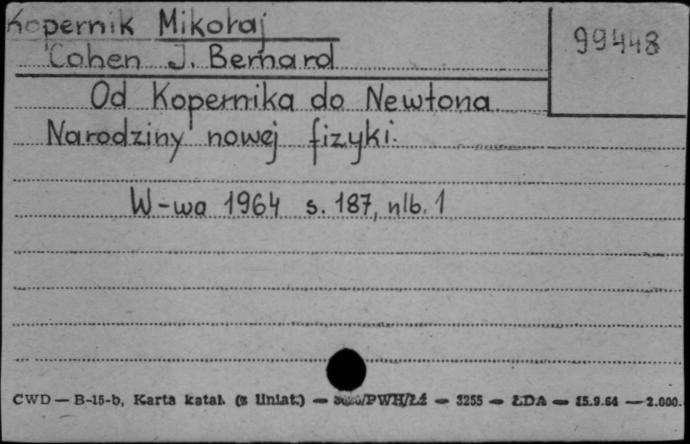 Kopernik Mikołaj
99448
Cohen J. Bernard
Od Kopernika do Newtona
Narodziny nowej fizyki.
W-wa 1964 s. 187, nlb. 1
CWD — B-15-b, Karta katal. (z liniat.) — /PWH/Łź — 3255 — ŁDA — 15.9.64 — 2.000.